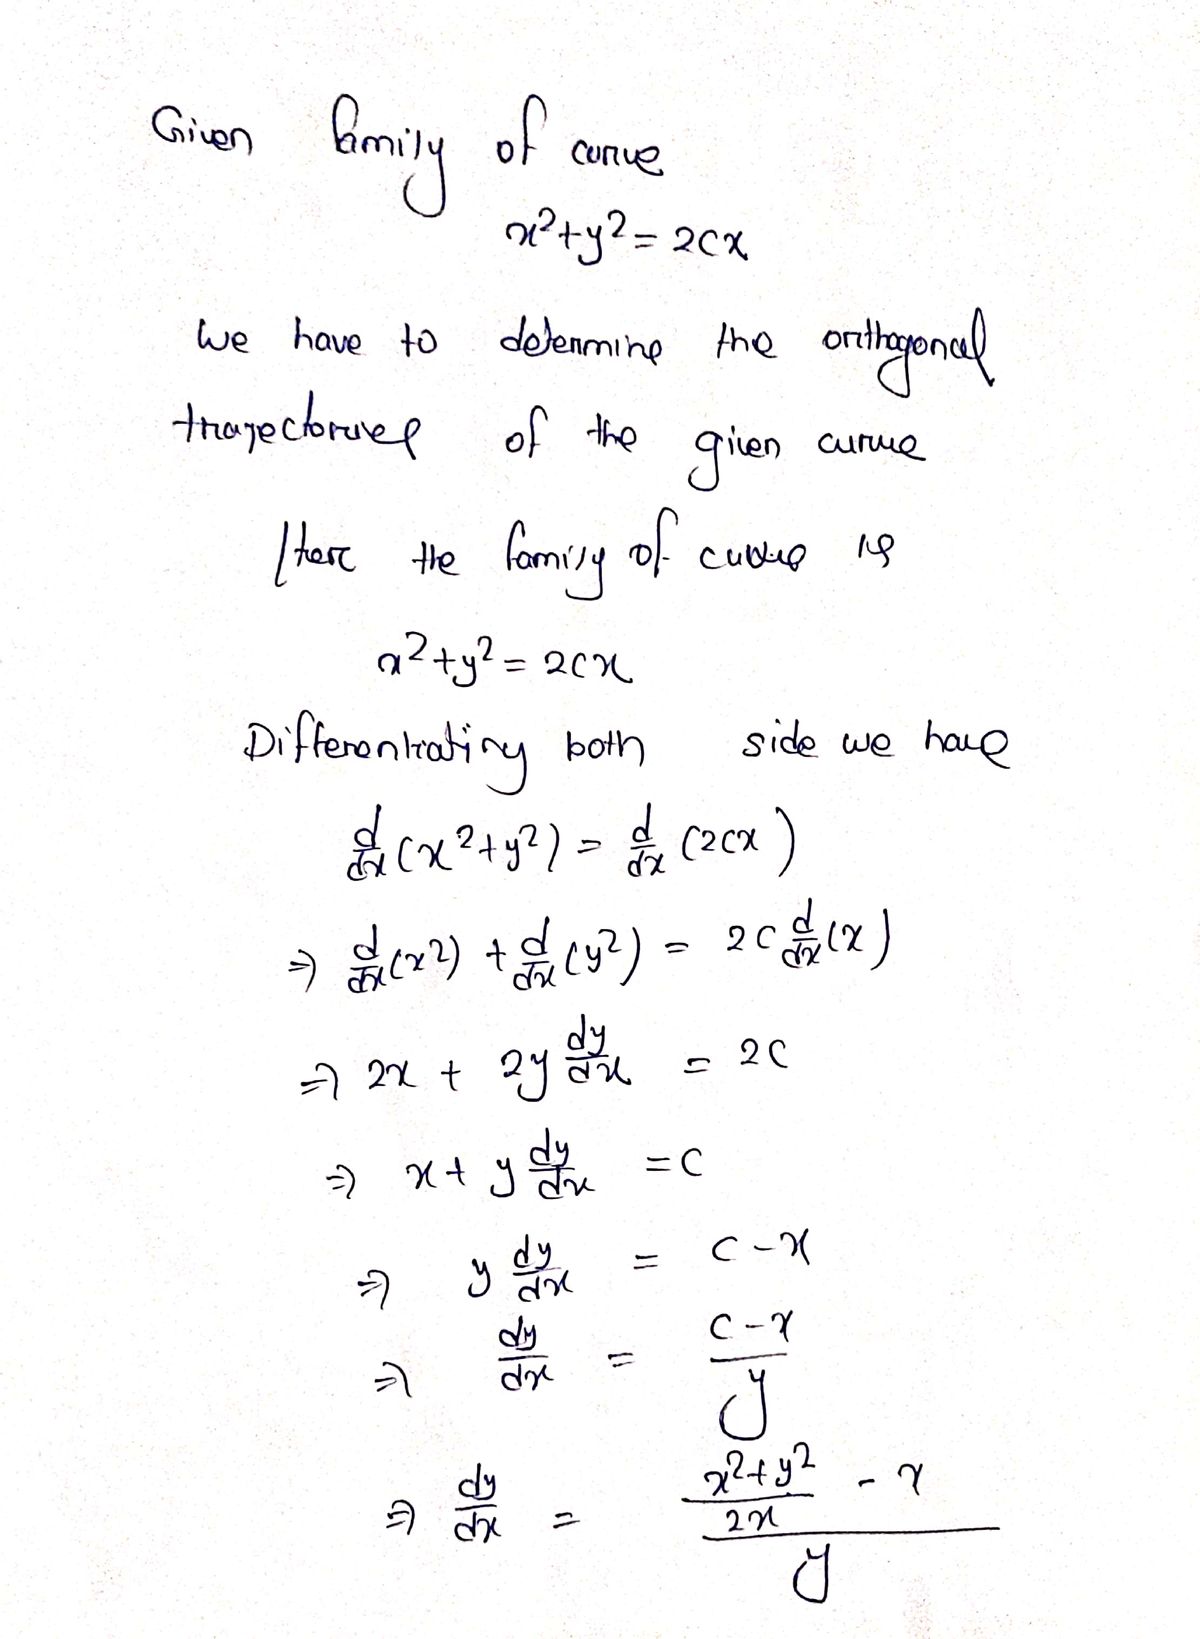 Given family of curve
x²+y² = 2cx
We have to determine the orthogonal
trajectories of the given curve
Here the family of curve is
x²+y² = 2cx
Differentiating both side we have
d/dx (x²+y²) = d/dx (2cx)
⇒ d/dx (x²) + d/dx (y²) = 2c d/dx (x)
⇒ 2x + 2y dy/dx = 2c
⇒ x + y dy/dx = c
⇒ y dy/dx = c - x
⇒ dy/dx = (c - x)/y
⇒ dy/dx = ((x²+y²)/2x - x)/y